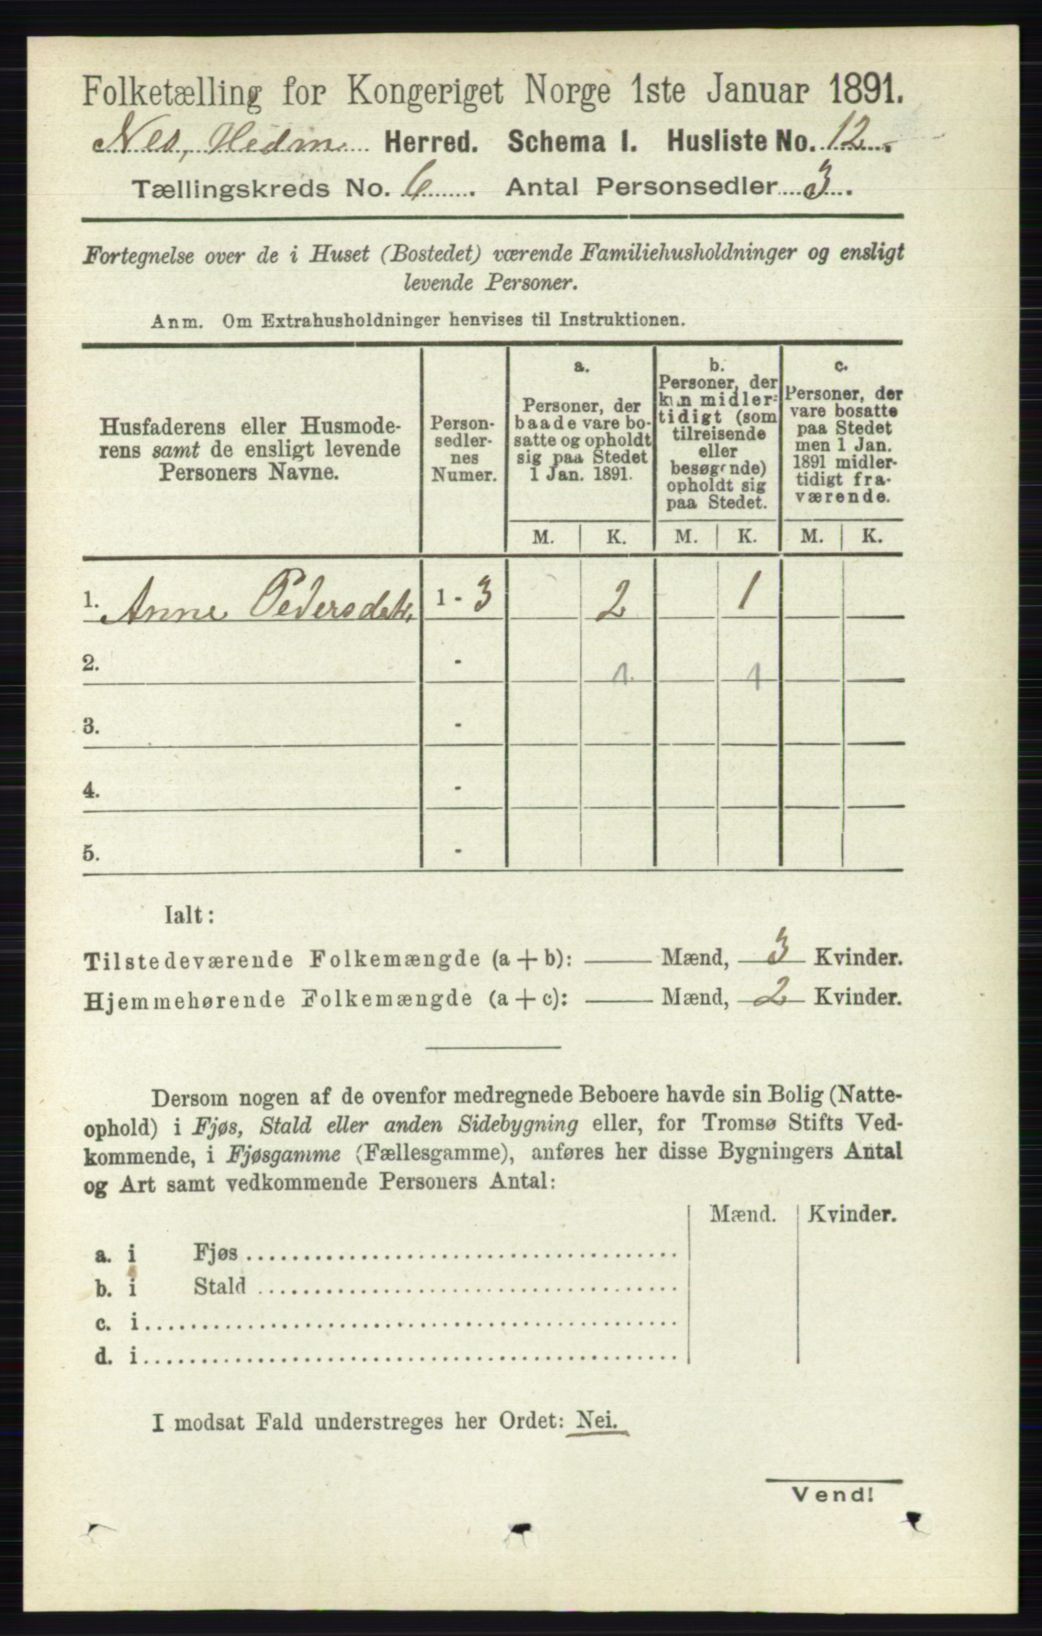 Folketælling for Kongeriget Norge 1ste Januar 1891.
Nes, Hedm Herred. Schema I. Husliste No. 12.
Tællingskreds No. 6. Antal Personsedler 3.
Fortegnelse over de i Huset (Bostedet) værende Familiehusholdninger og ensligt
levende Personer.
Anm. Om Extrahusholdninger henvises til Instruktionen.
Husfaderens eller Husmode-
rens samt de ensligt levende
Personers Navne.
Person-
sedler-
nes
Numer.
a.
Personer, der
baade vare bo-
satte og opholdt
sig paa Stedet
1 Jan. 1891.
b.
Personer, der
kun midler-
tidigt (som
tilreisende
eller
besøgende)
opholdt sig
paa Stedet.
c.
Personer, der
vare bosatte
paa Stedet
men 1 Jan.
1891 midler-
tidigt fra-
værende.
M. K. M. K. M. K.
1. Anne Pedersdatt. 1 - 3 2 1
2. - 1. 1
3. -
4. -
5. -
Ialt:
Tilstedeværende Folkemængde (a + b): — Mænd, 3 Kvinder.
Hjemmehørende Folkemængde (a + c): — Mænd, 2 Kvinder.
Dersom nogen af de ovenfor medregnede Beboere havde sin Bolig (Natte-
ophold) i Fjøs, Stald eller anden Sidebygning eller, for Tromsø Stifts Ved-
kommende, i Fjøsgamme (Fællesgamme), anføres her disse Bygningers Antal
og Art samt vedkommende Personers Antal:
Mænd. Kvinder.
a. i Fjøs
b. i Stald
c. i
d. i
I modsat Fald understreges her Ordet: Nei.
Vend!